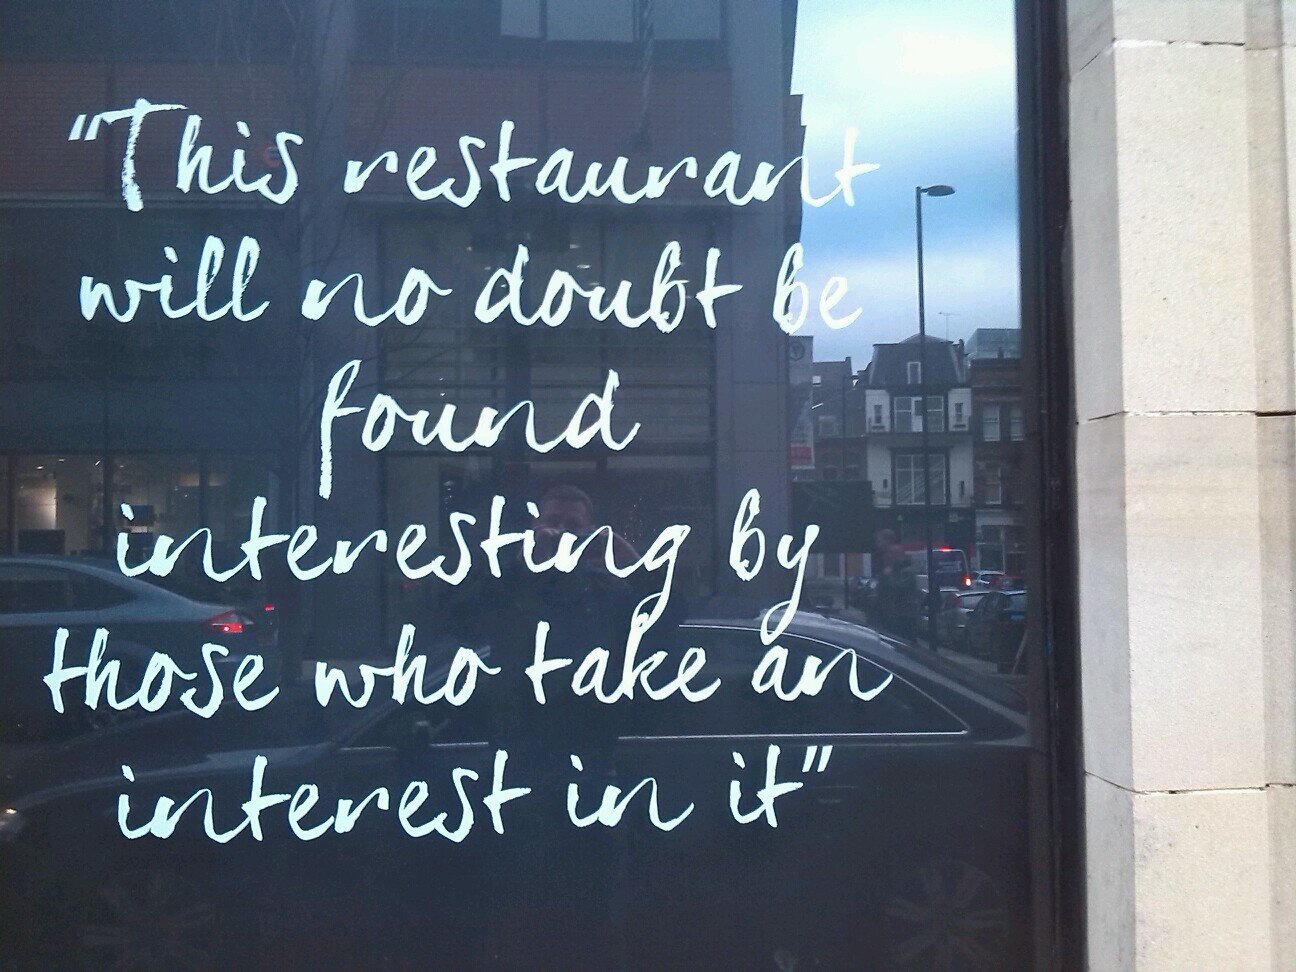 "This restaurant
will no doubt be
found
interesting by
those who take an
interest in it"